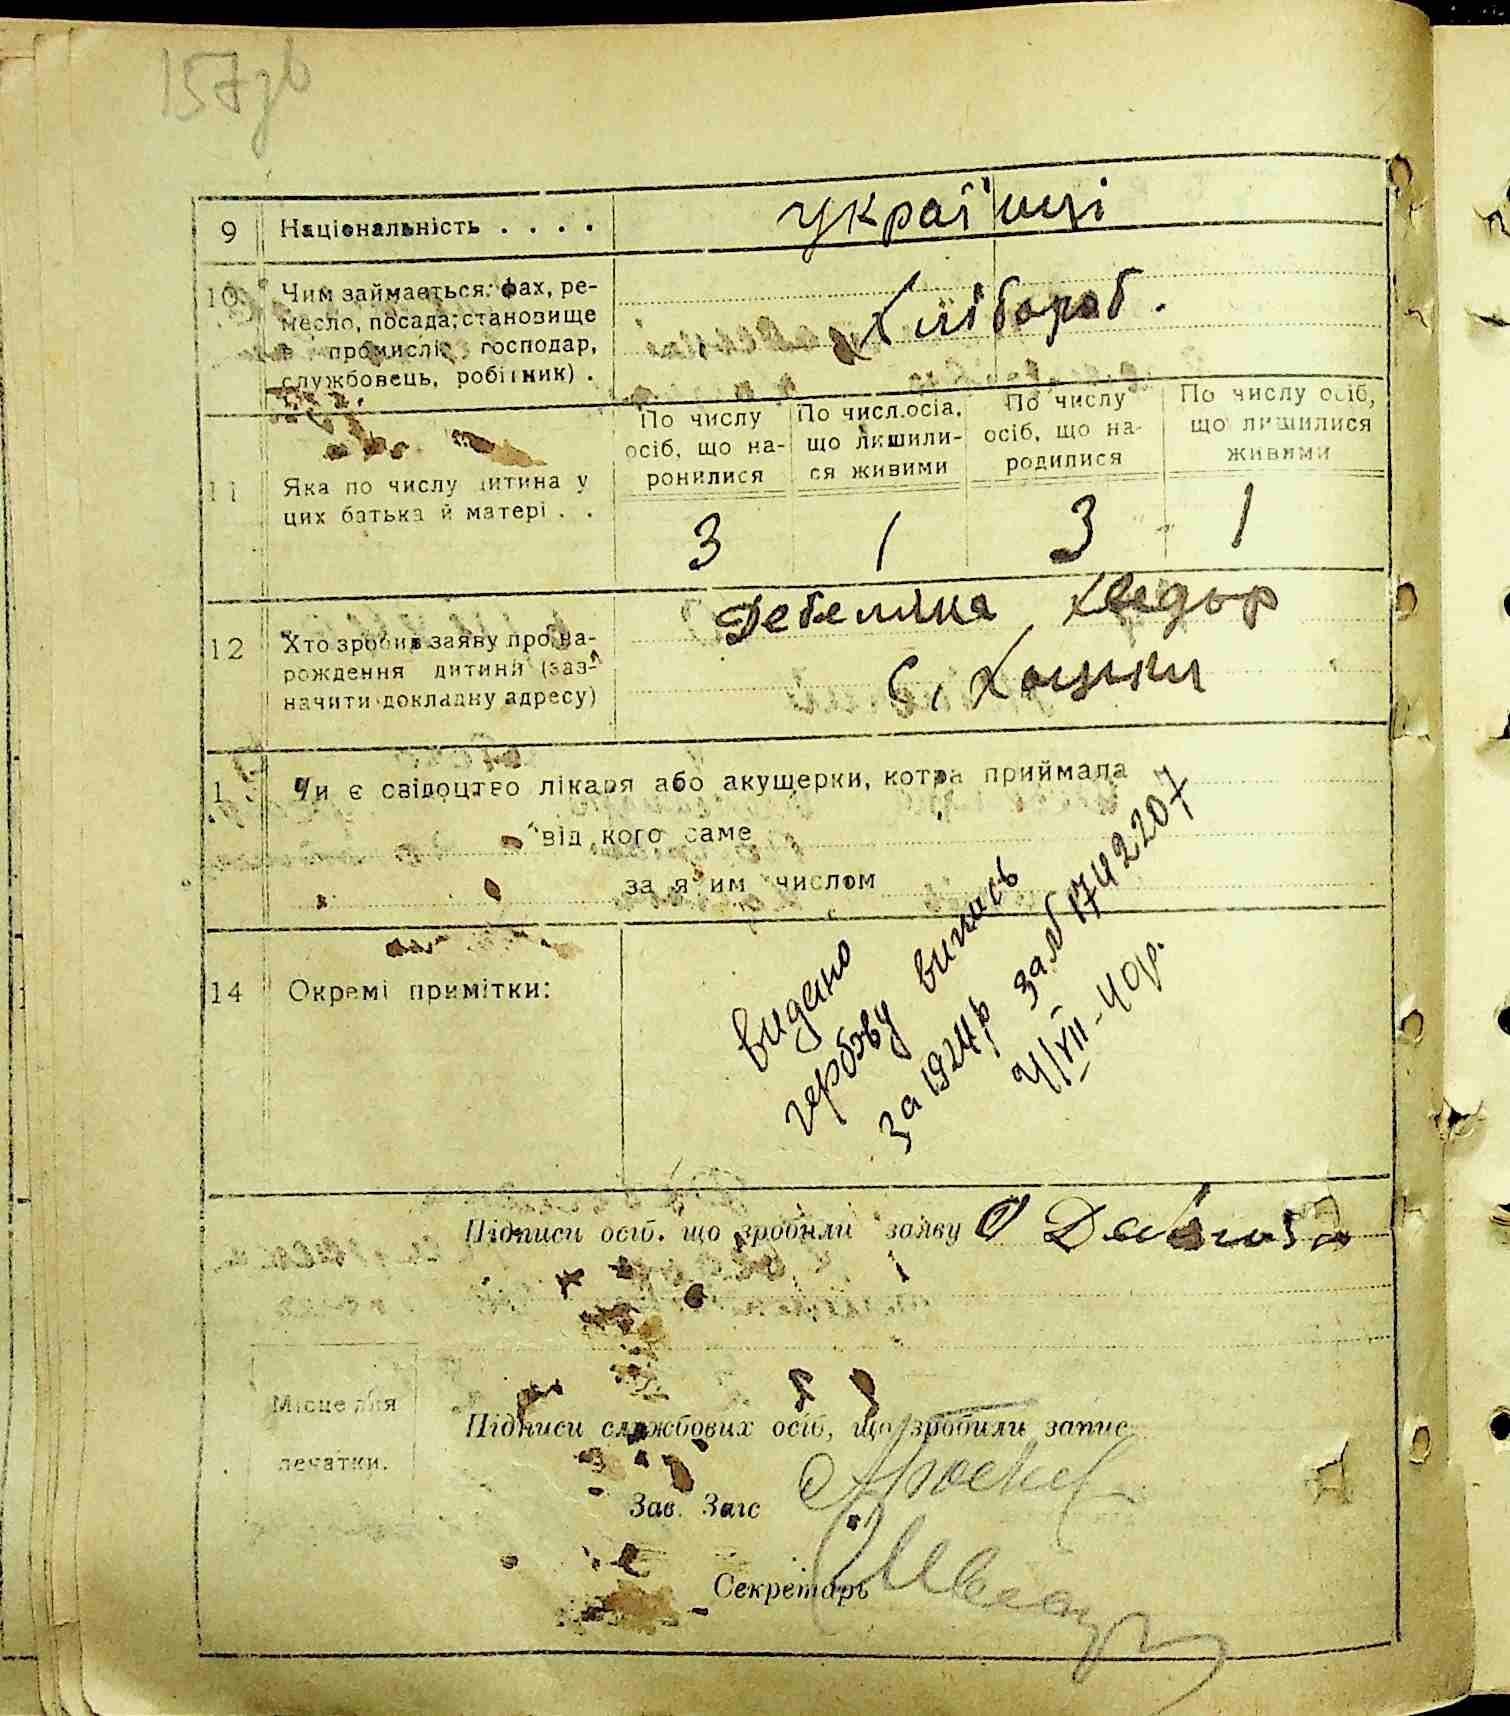 157зв
9 Національність . . . . українці
10 Чим займається: фах, ре-
месло, посада; становище
в промислі: господар,
службовець, робітник) .
Хлібороб.
По числу
осіб, що на-
ронилися
По числ.осіа,
що лишили-
ся живими
По числу
осіб, що на-
родилися
По числу осіб,
що лишилися
живими
11 Яка по числу дитина у
цих батька й матері . .
3 1 3 1
12 Хто зробив заяву про на-
рождення дитини (заз-
начити докладну адресу)
Хведьр
с. Хоцьки
1 Чи є свідоцтво лікаря або акушерки, котра приймала
від кого саме
за яким числом
14 Окремі примітки:
видано
гербову випись
за 1924р за № 1742207
4/VII-40р.
Підписи осіб, що зробили заяву
Місце для
печатки.
Підписи службових осіб, що зробили запис
Зав. Загс
Секретарь